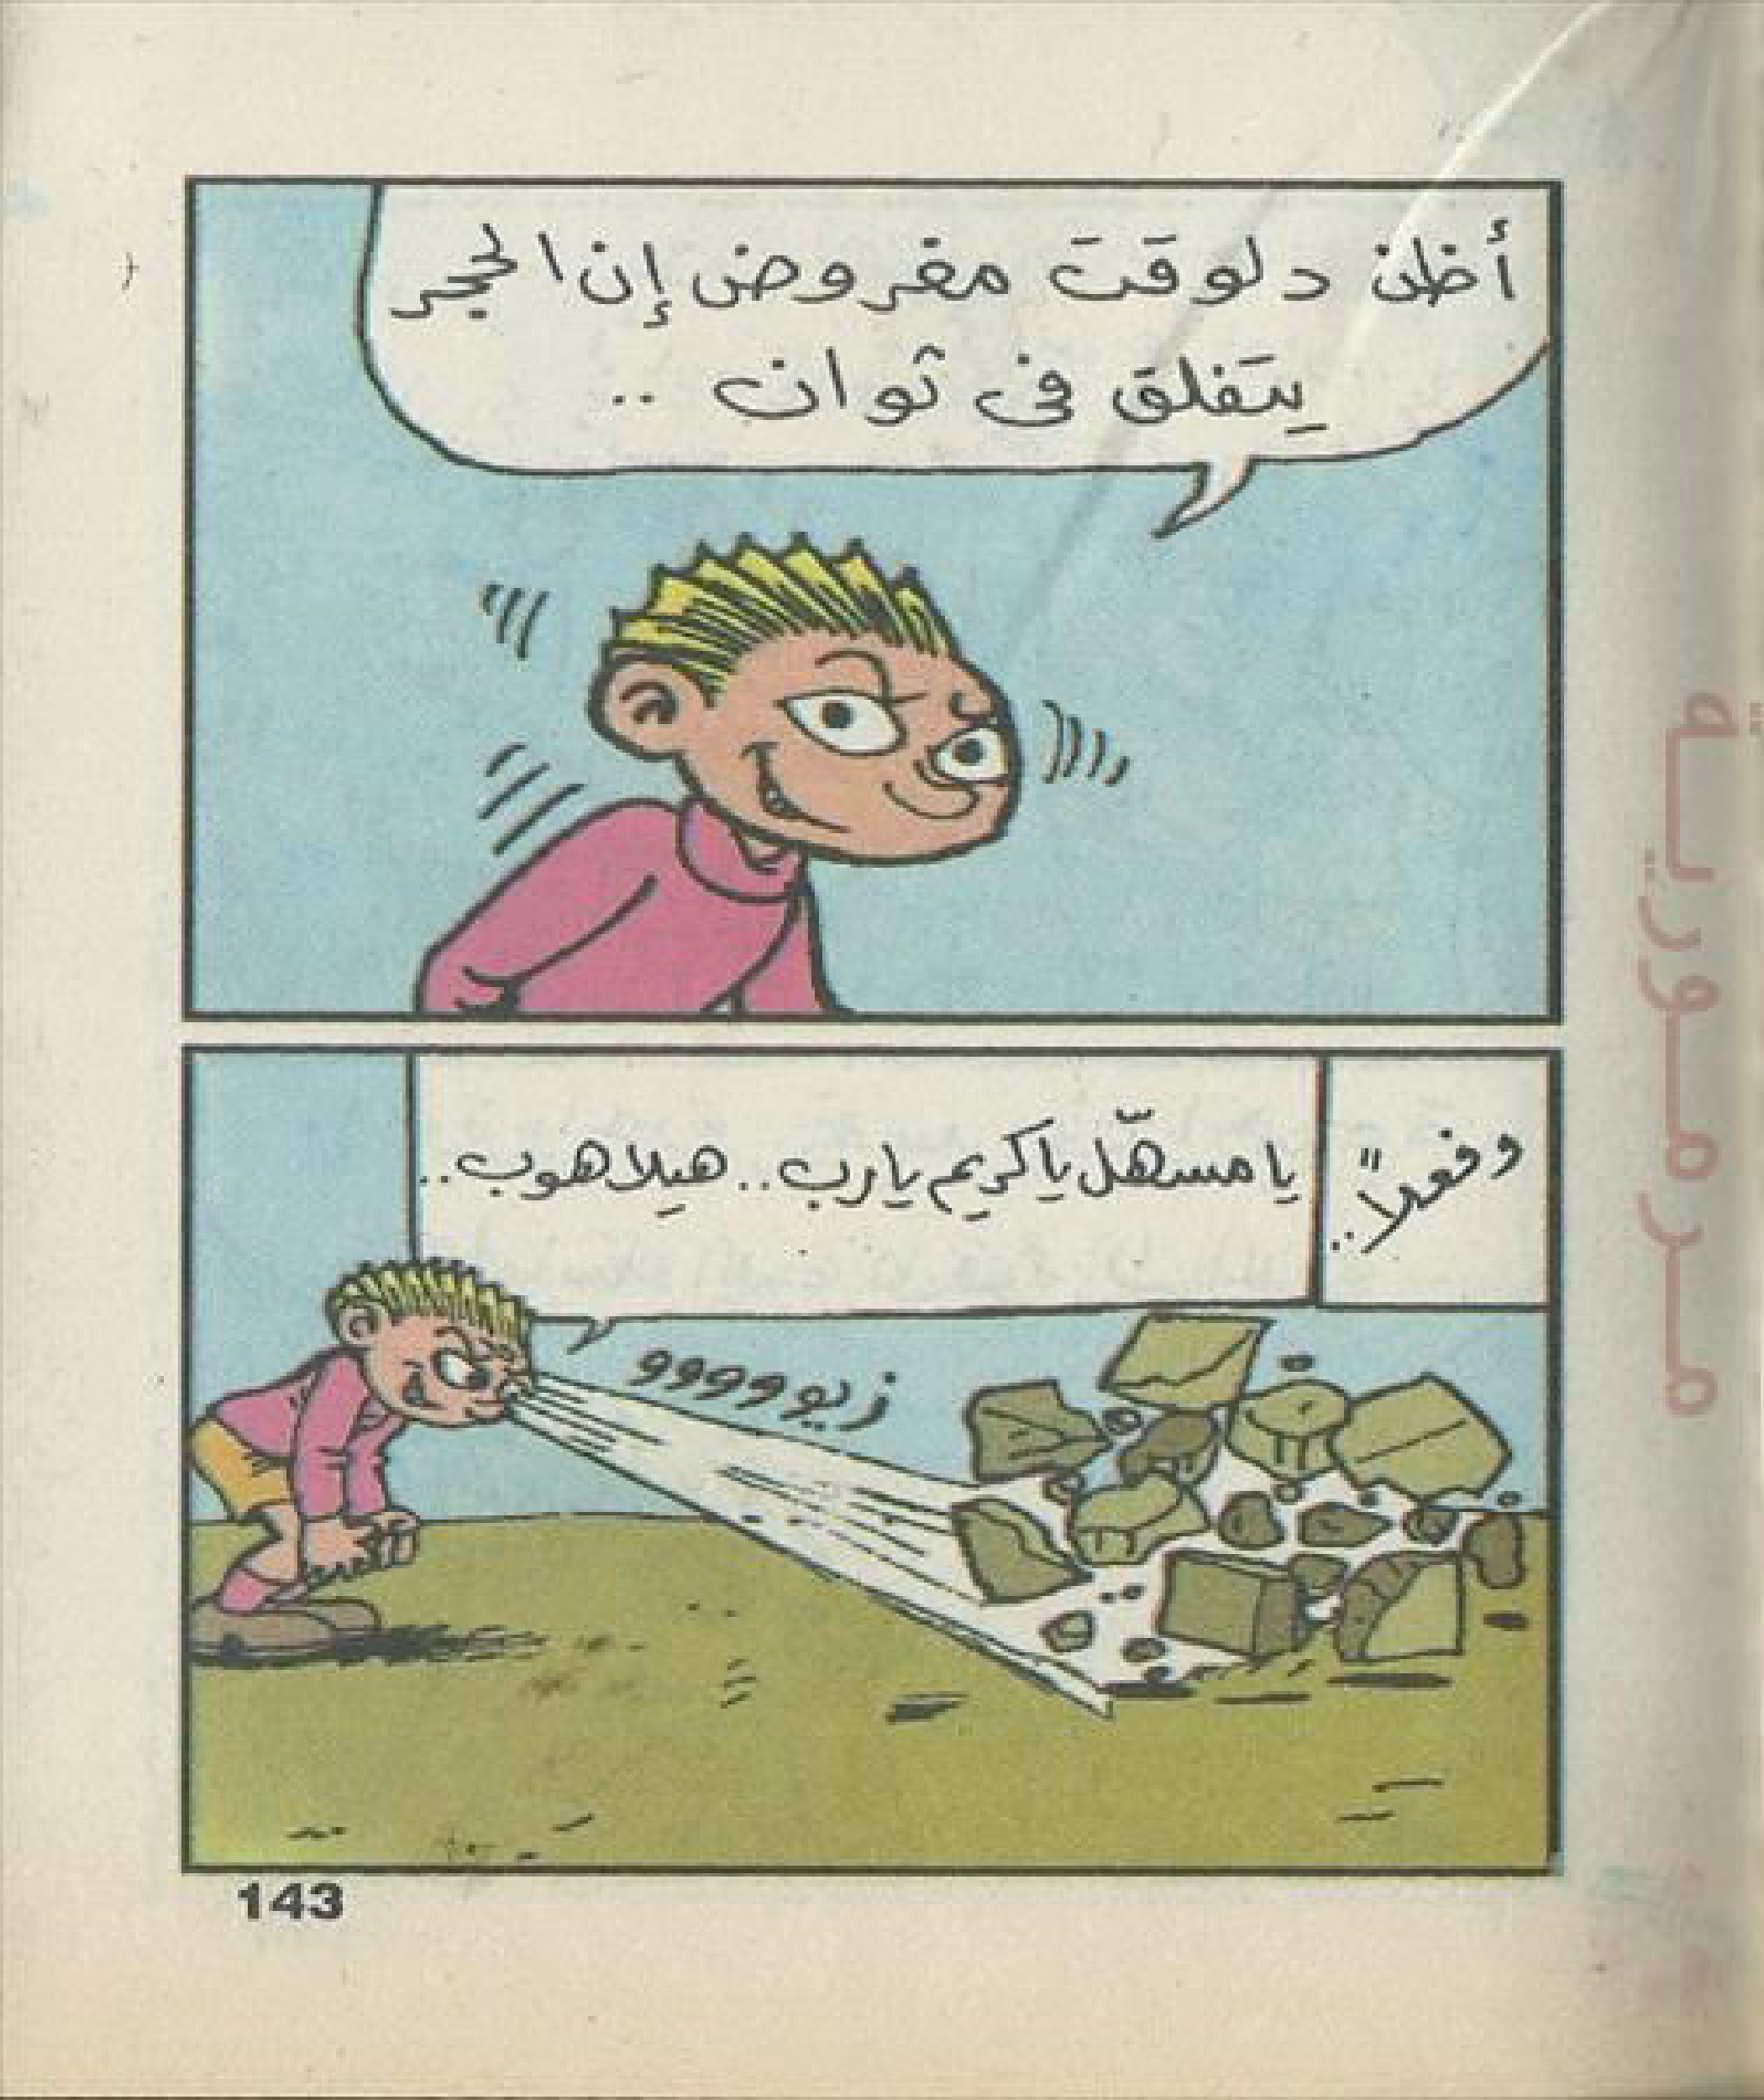 أظن دلوقت مفروض إن الحجر
يتفلق فى ثوان ..
وفعلاً ..
يا مسهّل يا كريم يا رب .. هيلا هوب ..
زيووووو
143
مرمورية